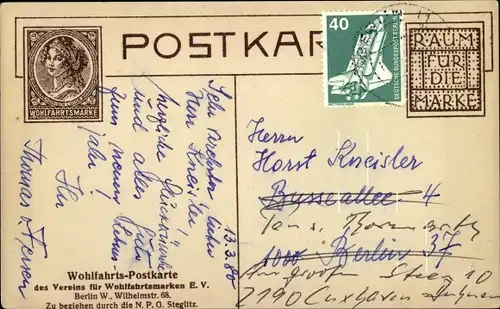 POSTKAR
WOHLFAHRTSMARKE
40
DEUTSCHE BUNDESPOST BERLIN
RAUM
FÜR
DIE
MARKE
13.3.80
Sehr verehrter, lieber
Herr Kneisler
herzliche Glückwünsche
und alles Gute
zum neuen Lebens-
jahr!
Ihr
Thomas
Herrn
Horst Kneisler
Busseallee 4
1000 Berlin 37
Am großen Steen 10
2190 Cuxhaven
Wohlfahrts-Postkarte
des Vereins für Wohlfahrtsmarken E. V.
Berlin W., Wilhelmstr. 68.
Zu beziehen durch die N. P. G. Steglitz.